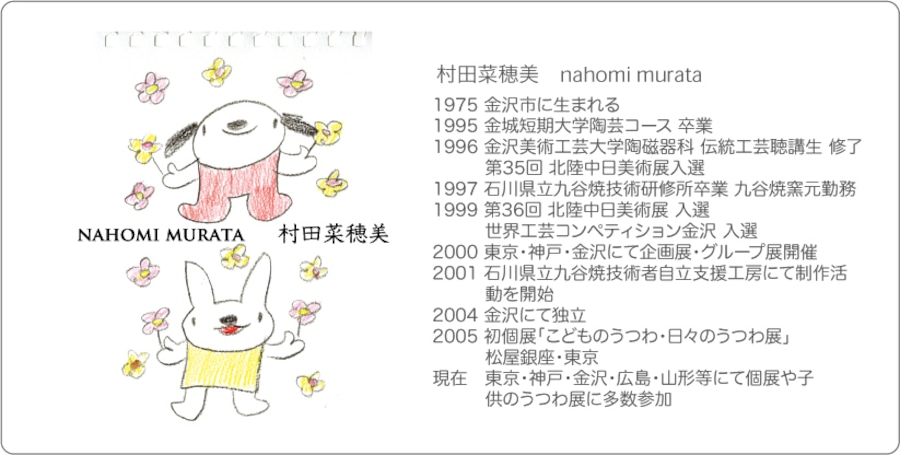 NAHOMI MURATA 村田菜穂美
村田菜穂美 nahomi murata
1975 金沢市に生まれる
1995 金城短期大学陶芸コース 卒業
1996 金沢美術工芸大学陶磁器科 伝統工芸聴講生 修了
第35回 北陸中日美術展入選
1997 石川県立九谷焼技術研修所卒業 九谷焼窯元勤務
1999 第36回 北陸中日美術展 入選
世界工芸コンペティション金沢 入選
2000 東京・神戸・金沢にて企画展・グループ展開催
2001 石川県立九谷焼技術者自立支援工房にて制作活
動を開始
2004 金沢にて独立
2005 初個展「こどものうつわ・日々のうつわ展」
松屋銀座・東京
現在 東京・神戸・金沢・広島・山形等にて個展や子
供のうつわ展に多数参加